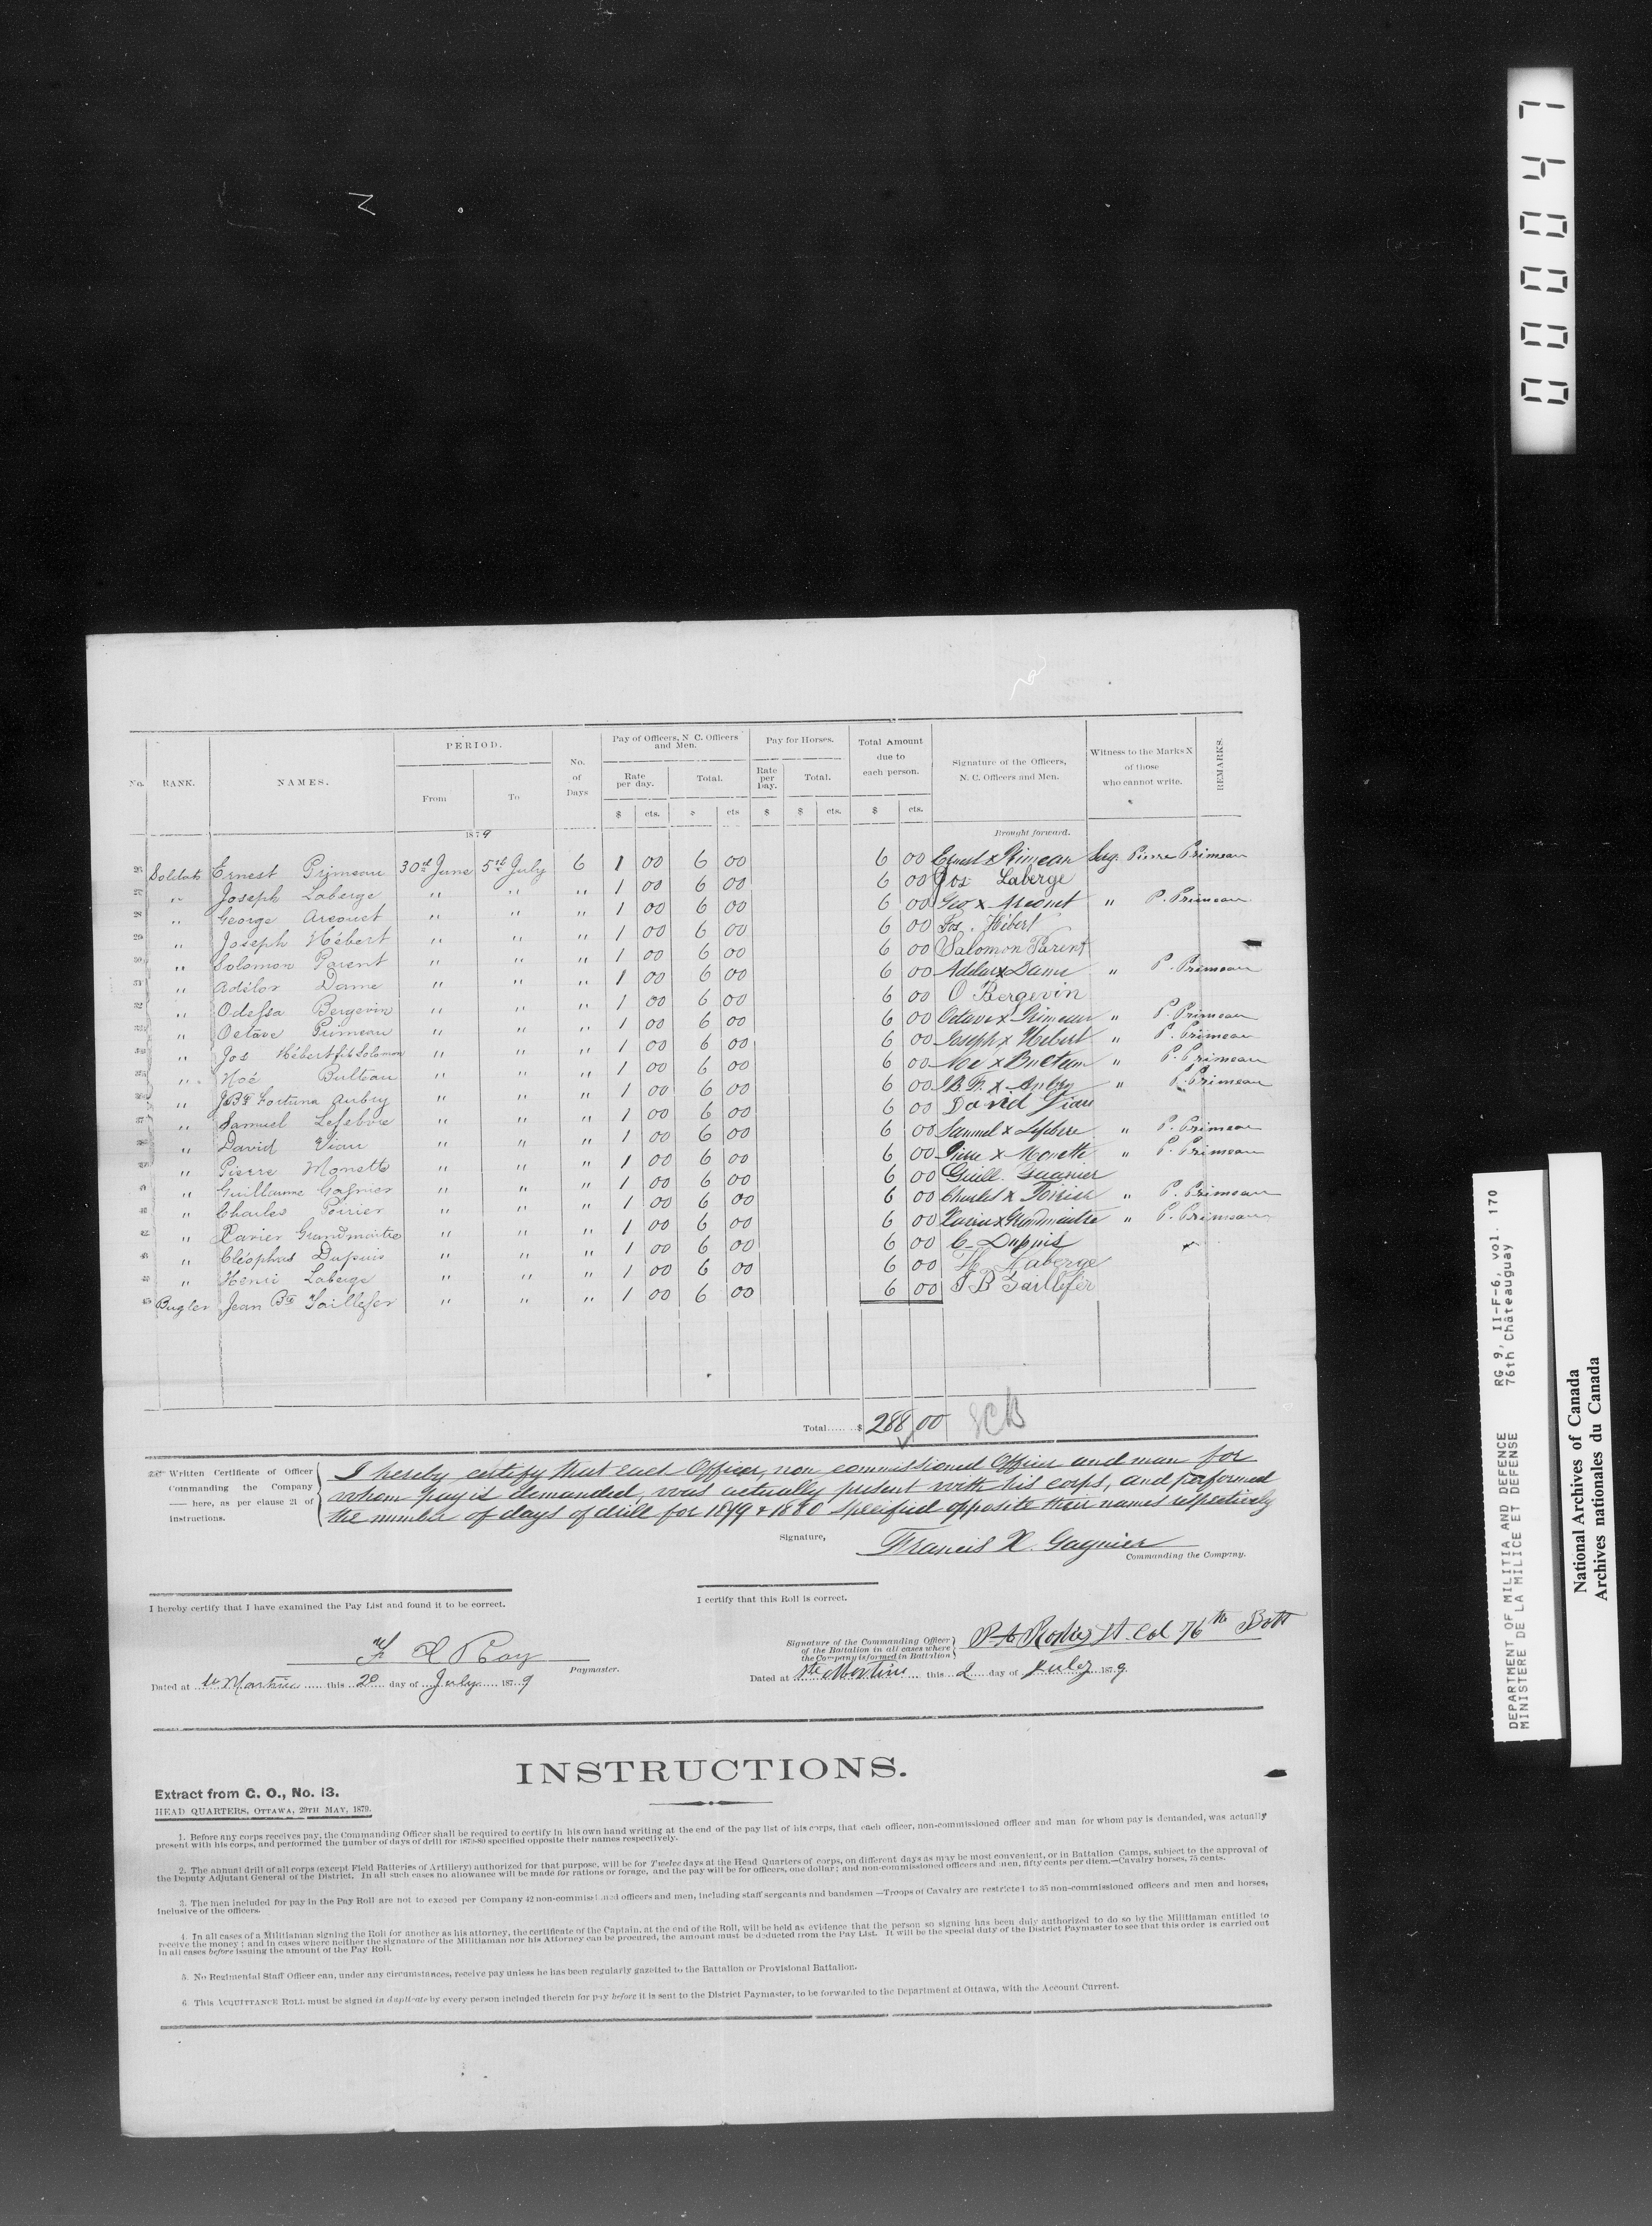 00047
No. RANK. NAMES. PERIOD. No. of Days Pay of Officers, N. C. Officers and Men. Pay for Horses. Total Amount due to each person. Signature of the Officers, N. C. Officers and Men. Witness to the Marks X of those who cannot write. REMARKS.
From To Rate per day. Total. Rate per Day. Total.
$ cts. $ cts $ $ cts. $ cts.
1879 Brought forward.
26 Soldats Ernest Primeau 30th June 5th July 6 1 00 6 00 6 00 Ernest x Primeau Serg. Pierre Primeau
27 " Joseph Laberge " " " 1 00 6 00 6 00 Jos Laberge
28 " George Arcouet " " " 1 00 6 00 6 00 Geo x Arcouet " P. Primeau
29 " Joseph Hébert " " " 1 00 6 00 6 00 Jos. Hébert
30 " Solomon Parent " " " 1 00 6 00 6 00 Salomon Parent
31 " Adélor Dame " " " 1 00 6 00 6 00 Adelor x Dame " P. Primeau
32 " Odessa Bergevin " " " 1 00 6 00 6 00 O Bergevin
33 " Octave Primeau " " " 1 00 6 00 6 00 Octave x Primeau " P. Primeau
34 " Jos Hébert fils Solomon " " " 1 00 6 00 6 00 Joseph x Hebert " P. Primeau
35 " Noé Bulteau " " " 1 00 6 00 6 00 Noe x Bulteau " P. Primeau
36 " J. Bte Fortuna Aubry " " " 1 00 6 00 6 00 J.B. F. x Aubry " P. Primeau
37 " Samuel Lefebvre " " " 1 00 6 00 6 00 David Viau
38 " David Viau " " " 1 00 6 00 6 00 Samuel x Lefebvre " P. Primeau
39 " Pierre Monette " " " 1 00 6 00 6 00 Pierre x Monette " P. Primeau
40 " Guillaume Gagnier " " " 1 00 6 00 6 00 Guill. Gagnier
41 " Charles Poirier " " " 1 00 6 00 6 00 Charles x Poirier " P. Primeau
42 " Xavier Grandmaitre " " " 1 00 6 00 6 00 Xavier x Grandmaitre " P. Primeau
43 " Cléophas Dupuis " " " 1 00 6 00 6 00 C. Dupuis
" Henri Laberge " " " 1 00 6 00 6 00 H. Laberge
45 Bugler Jean Bte Taillefer " " " 1 00 6 00 6 00 J B Taillefer
Total...... $ 288 00
Written Certificate of Officer Commanding the Company — here, as per clause 21 of Instructions.
I hereby certify that each Officer, non commissioned Officer and man for
whom pay is demanded, was actually present with his corps, and performed
the number of days of drill for 1879 & 1880 specified opposite their names respectively
Signature, Francis X. Gagnier
Commanding the Company.
I hereby certify that I have examined the Pay List and found it to be correct.
I certify that this Roll is correct.
F X Roy
Paymaster.
Signature of the Commanding Officer of the Battalion in all cases where the Company is formed in Battalion Lt. Col 76th Batt
Dated at Ste Martine this 20 day of July 1879
Dated at Ste Martine this 2 day of July 1879
INSTRUCTIONS.
Extract from G. O., No. 13.
HEAD QUARTERS, OTTAWA, 29TH MAY, 1879.
1. Before any corps receives pay, the Commanding Officer shall be required to certify in his own hand writing at the end of the pay list of his corps, that each officer, non-commissioned officer and man for whom pay is demanded, was actually
present with his corps, and performed the number of days of drill for 1879-80 specified opposite their names respectively.
2. The annual drill of all corps (except Field Batteries of Artillery) authorized for that purpose, will be for Twelve days at the Head Quarters of corps, on different days as may be most convenient, or in Battalion Camps, subject to the approval of
the Deputy Adjutant General of the District. In all such cases no allowance will be made for rations or forage, and the pay will be for officers, one dollar; and non-commissioned officers and men, fifty cents per diem.—Cavalry horses, 75 cents.
3. The men included for pay in the Pay Roll are not to exceed per Company 42 non-commissioned officers and men, including staff sergeants and bandsmen—Troops of Cavalry are restricted to 35 non-commissioned officers and men and horses,
inclusive of the officers.
4. In all cases of a Militiaman signing the Roll for another as his attorney, the certificate of the Captain, at the end of the Roll, will be held as evidence that the person so signing has been duly authorized to do so by the Militiaman entitled to
receive the money; and in cases where neither the signature of the Militiaman nor his Attorney can be procured, the amount must be deducted from the Pay List. It will be the special duty of the District Paymaster to see that this order is carried out
in all cases before issuing the amount of the Pay Roll.
5. No Regimental Staff Officer can, under any circumstances, receive pay unless he has been regularly gazetted to the Battalion or Provisional Battalion.
6. This ACQUITTANCE ROLL must be signed in duplicate by every person included therein for pay before it is sent to the District Paymaster, to be forwarded to the Department at Ottawa, with the Account Current.
DEPARTMENT OF MILITIA AND DEFENCE RG 9, II-F-6, vol. 170
MINISTERE DE LA MILICE ET DEFENSE 76th Châteauguay
National Archives of Canada
Archives nationales du Canada